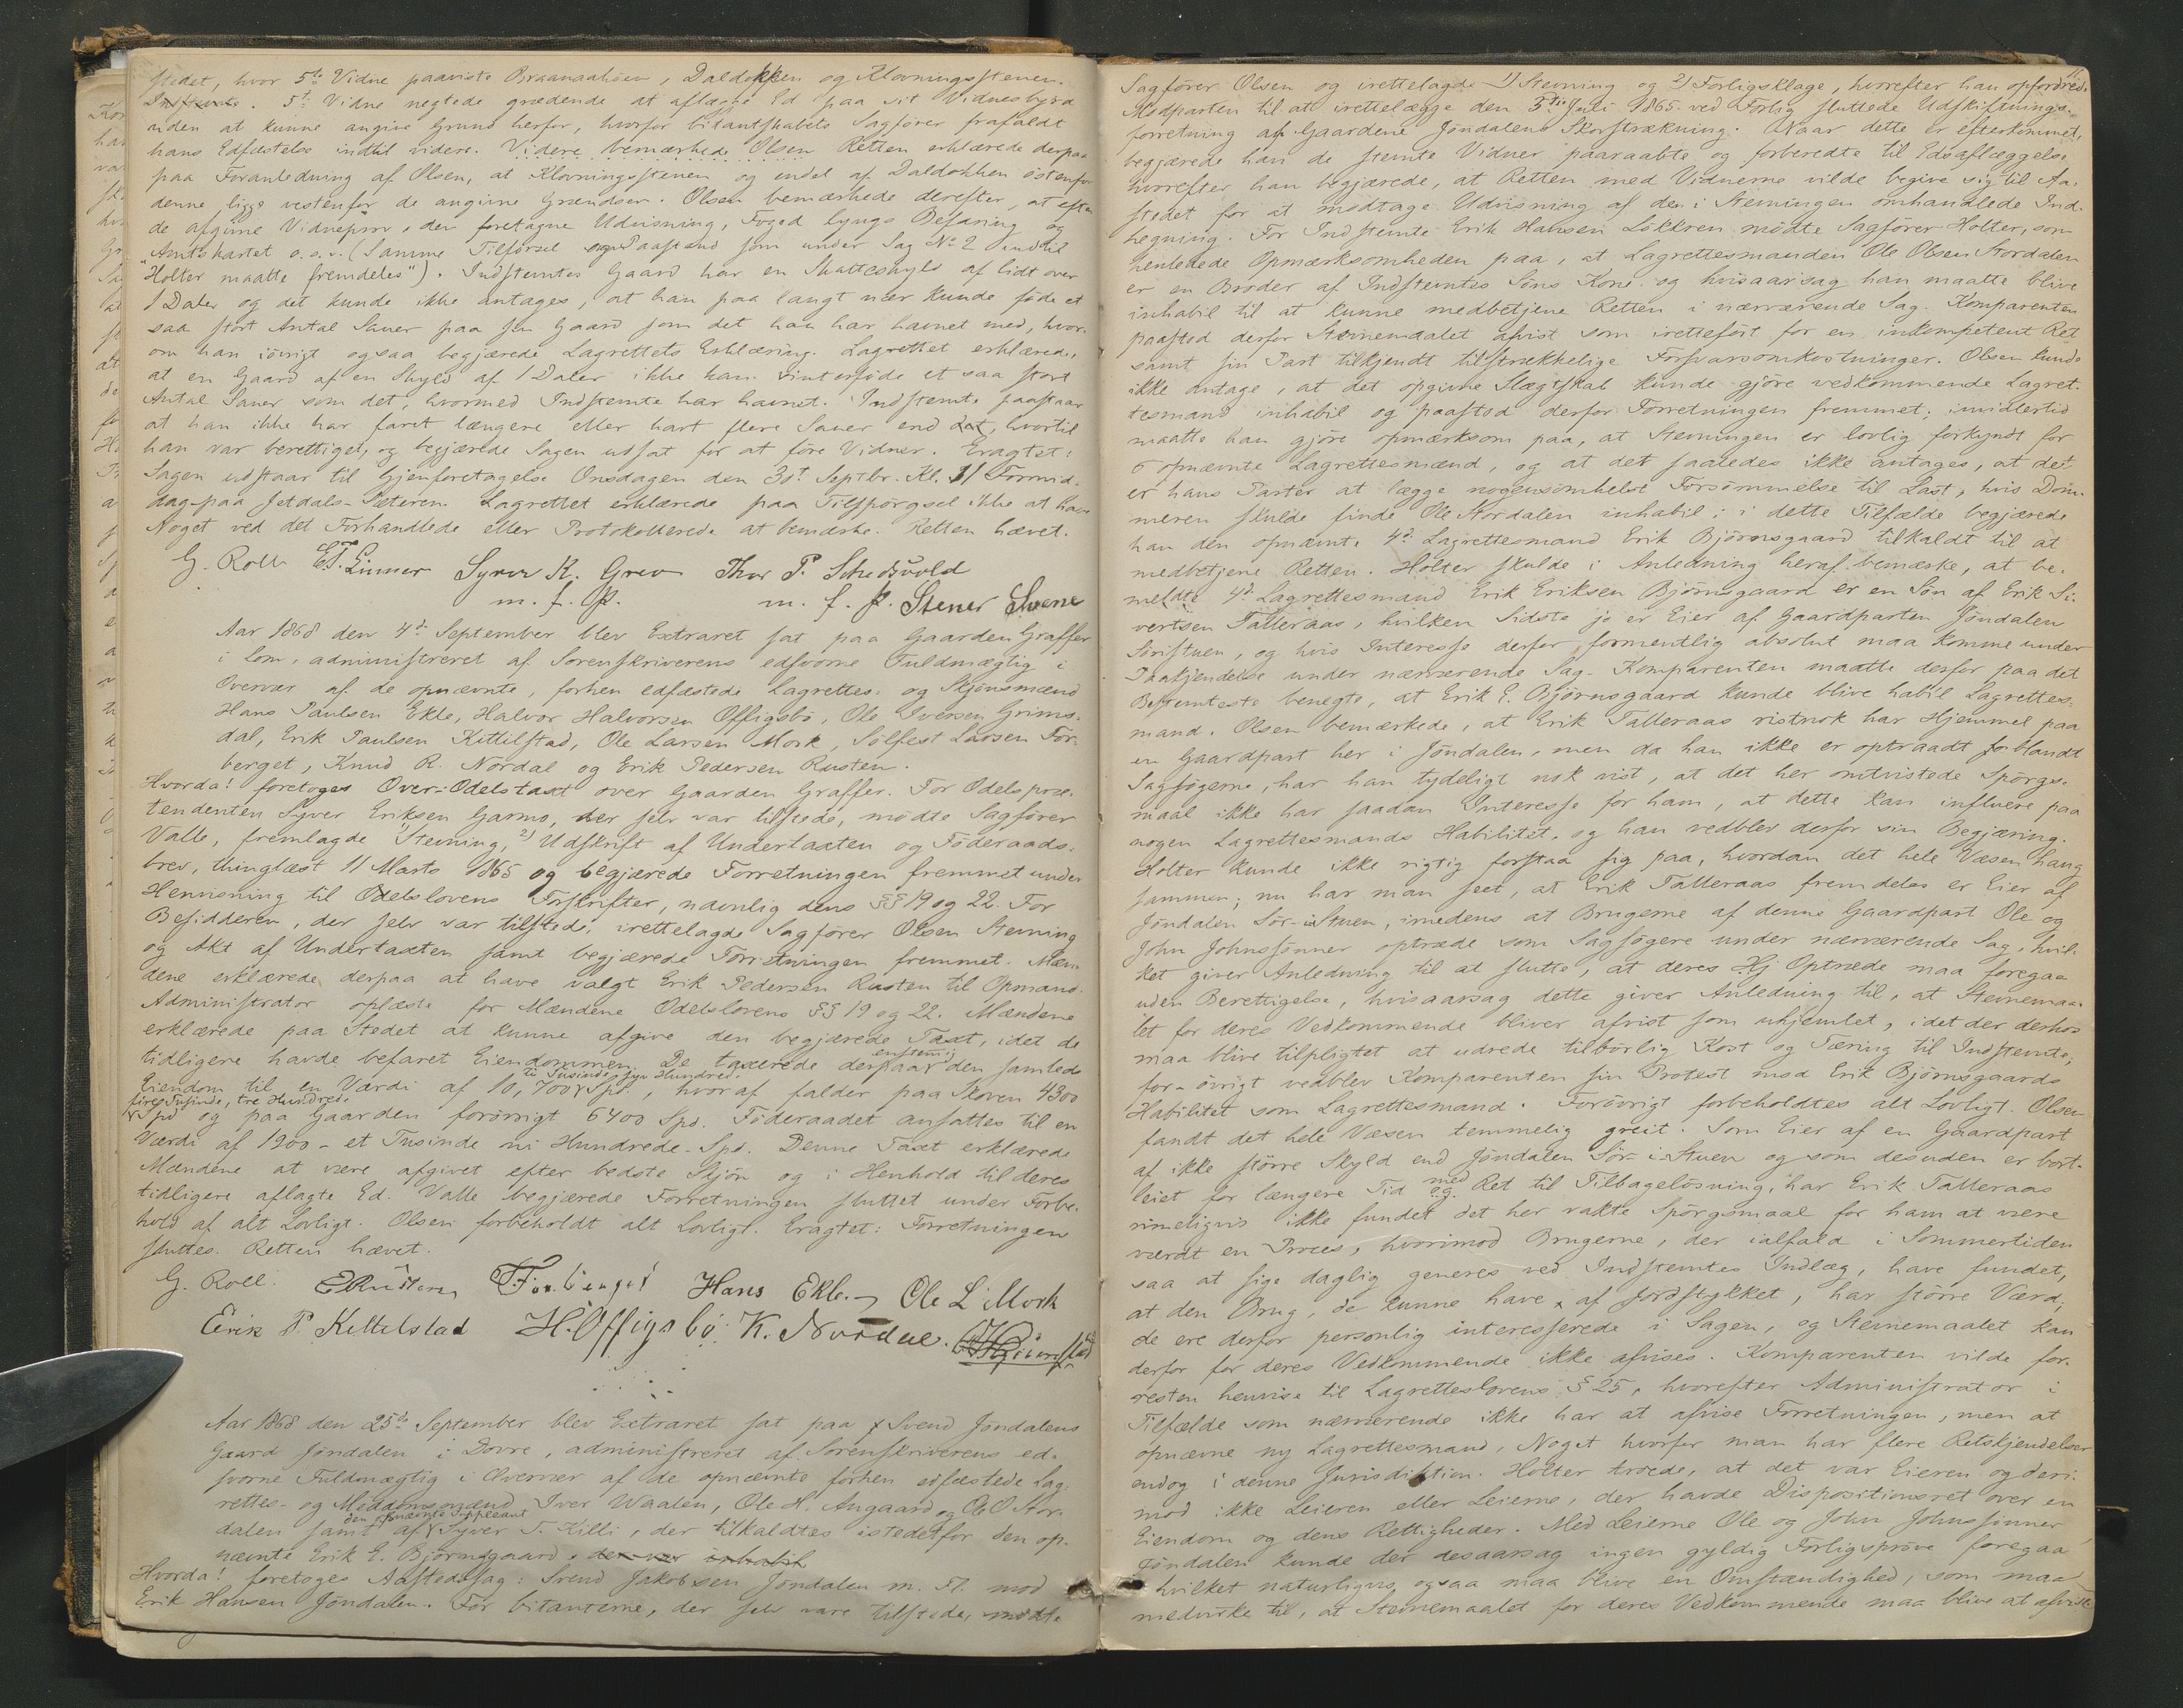 stedet, hvor 5te Vidne paaviste Braanaahöen, Daldokken og Klovningsstenen.
Indstevnte. 5te Vidne negtede grædende at aflægge Ed paa sit Vidnesbyrd
uden at kunne angive Grund herfor, hvorfor Citantskabets Sagförer frafaldt
hans Edfæstelse indtil videre. Videre bemærkede Olsen Retten erklærede derpaa
paa Foranledning af Olsen, at Klovningsstenen og endel af Daldokken östenfor
denne ligge vestenfor de angivne Grændser. Olsen bemærkede derefter, at efter
de afgivne Vidneprov, den foretagne Udvisning, Foged Lyngs Befaring og
Amtskartet o.s.v. (Samme Tilförsel og Paastand som under Sag No 2 indtil
"Holter maatte fremdeles"). Indstevntes Gaard har en Skatteskyld af lidt over
1 Daler og det kunde ikke antages, at han paa langt nær kunde föde et
saa stort Antal Sauer paa sin Gaard som det han har havnet med, hvor-
om han iövrigt ogsaa begjærede Lagrettets Erklæring. Lagrettet erklærede,
at en Gaard af en Skyld af 1 Daler ikke kan vinterföde et saa stort
Antal Sauer som det, hvormed Indstevnte har havnet. Indstevnte paastaar
at han ikke har faret længere eller havt flere Sauer end det, hvortil
han var berettiget, og begjærede Sagen udsat for at före Vidner. Eragtet:
Sagen udstaar til Gjenforetagelse Onsdagen den 30te Septbr. Kl. 11 Formid-
dag paa Jetdals-Sæteren. Lagrettet erklærede paa Tilspörgsel ikke at have
Noget ved det Forhandlede eller Protokollerede at bemærke. Retten hævet.
G. Roll E.T. Linner Syver K. Grev Thor P. Schedsvold
m. f. P. m. f. P. Stener Svene
Aar 1868 den 4de September blev Extraret sat paa Gaarden Graffer
i Lom, administreret af Sorenskriverens edsvorne Fuldmægtig i
Overvær af de opnævnte, forhen edfæstede Lagrettes- og Skjönsmænd
Hans Paulsen Ekle, Halvor Halvorsen Offigsbö, Ole Iversen Grims-
dal, Erik Paulsen Kittilstad, Ole Larsen Mork, Sölfest Larsen For-
berget, Knud R. Nordal og Erik Pedersen Rusten.
Hvorda! foretoges Over-Odelstaxt over Gaarden Graffer. For Odelspræ-
tendenten Syver Eriksen Garmo, der selv var tilstede, mödte Sagförer
Valle, fremlagde 1) Stevning, 2) Udskrift af Undertaxten og Föderaads-
brev, thinglæst 11 Marts 1865 og begjærede Forretningen fremmet under
Henvisning til Odelslovens Forskrifter, navnlig dens §§ 19 og 22. For
Besidderen, der selv var tilstede, irettelagde Sagförer Olsen Stevning
og Akt af Undertaxten samt begjærede Forretningen fremmet. Mæn-
dene erklærede derpaa at have valgt Erik Pedersen Rusten til Opmand.
Administrator oplæste for Mændene Odelslovens §§ 19 og 22. Mændene
erklærede paa Stedet at kunne afgive den begjærede Taxt, idet de
tidligere havde befaret Eiendommen. De taxerede derpaa enstemmig den samlede
Eiendom til en Værdi af 10,700 ti Tusinde syv Hundrede Spd., hvoraf falder paa Skoven 4300
fire Tusinde, tre Hundrede Spd og paa Gaarden forövrigt 6400 Spd. Föderaadet ansattes til en
Værdi af 1900 - et Tusinde ni Hundrede - Spd. Denne Taxt erklærede
Mændene at være afgivet efter bedste Skjön og i Henhold til deres
tidligere aflagte Ed. Valle begjærede Forretningen sluttet under Forbe-
hold af alt Lovligt. Olsen forbeholdt alt Lovligt. Eragtet: Forretningen
sluttes. Retten hævet.
G. Roll. E Rusten S. Forberget Hans Ekle Ole L Mork
Erik P Kettelstad H. Offigsbö K. Nordal.
Aar 1868 den 25de September blev Extraret sat paa Svend Jöndalens
Gaard Jöndalen i Dovre, administreret af Sorenskriverens ed-
svorne Fuldmægtig i Overvær af de opnævnte forhen edfæstede Lag-
rettes- og Meddomsmænd Iver Waalen, Ole H. Angaard og Ole O Stor-
dalen samt af den opnævnte Suppleant Syver T. Killi, der tilkaldtes istedetfor den op-
nævnte Erik E. Björnsgaard, der var inhabil
Hvorda! foretoges Aastedssag: Svend Jakobsen Jöndalen m. Fl. mod
Erik Hansen Jöndalen. For Citanterne, der selv vare tilstede, mödte
Sagförer Olsen og irettelagde 1) Stevning og 2) Forligsklage, hvorefter han opfordrede
Modparten til at irettelægge den 3die Juli 1865 ved Forlig sluttede Udskiftnings-
forretning af Gaardene Jöndalens Skovstrækning. Naar dette er efterkommet,
begjærede han de stevnte Vidner paaraabte og forberedte til Edsaflæggelse
hvorefter han begjærede, at Retten med Vidnerne vilde begive sig til Aa-
stedet for at modtage Udvisning af den i Stevningen omhandlede Ind-
hegning. For Indstevnte Erik Hansen Lökkren mödte Sagförer Holter, som
henledede Opmærksomheden paa, at Lagrettesmanden Ole Olsen Stordalen
er en Broder af Indstevntes Söns Kone og hvisaarsag han maatte blive
inhabil til at kunne medbetjene Retten i nærværende Sag. Komparenten
paastod derfor Stevnemaalet afvist som irettefört for en inkompetent Ret
samt sin Part tilkjendt tilstrækkelige Forsvarsomkostninger. Olsen kunde
ikke antage, at det opgivne Slægtskab kunde gjöre vedkommende Lagret-
tesmand inhabil og paastod derfor Forretningen fremmet; imidlertid
maatte han gjöre opmærksom paa, at Stevningen er lovlig forkyndt for
6 opnævnte Lagrettesmænd, og at det saaledes ikke antages, at det
er hans Parter at lægge nogensomhelst Forsömmelse til Last, hvis Dom-
meren skulde finde Ole Stordalen inhabil; i dette Tilfælde begjærede
han den opnævnte 4de Lagrettesmand Erik Björnsgaard tilkaldt til at
medbetjene Retten. Holter skulde i Anledning heraf bemærke, at be-
meldte 4de Lagrettesmand Erik Eriksen Björnsgaard er en Sön af Erik Si-
vertsen Talleraas, hvilken Sidste jo er Eier af Gaardparten Jöndalen
Söristuen, og hvis Interesse derfor formentlig absolut maa komme under
Paakjendelse under nærværende Sag. Komparenten maatte derfor paa det
Bestemteste benegte, at Erik E. Björnsgaard kunde blive habil Lagrettes-
mand. Olsen bemærkede, at Erik Talleraas vistnok har Hjemmel paa
en Gaardpart her i Jöndalen, men da han ikke er optraadt iblandt
Sagsögerne, har han tydeligt nok vist, at det her omtvistede Spörgs-
maal ikke har saadan Interesse for ham, at dette kan influere paa
nogen Lagrettesmands Habilitet, og han vedblev derfor sin Begjæring.
Holter kunde ikke rigtig forstaa sig paa, hvordan det hele Væsen hang
sammen; nu har man seet, at Erik Talleraas fremdeles er Eier af
Jöndalen Sör-i-Stuen, imedens at Brugerne af denne Gaardpart Ole og
John Johnssönner optræde som Sagsögere under nærværende Sag, hvil-
ket giver Anledning til at slutte, at deres Optræde maa foregaa
uden Berettigelse, hvisaarsag dette giver Anledning til, at Stevnemaa-
let for deres Vedkommende bliver afvist som uhjemlet, idet der derhos
maa blive tilpligtet at udrede tilbörlig Kost og Tæring til Indstevnte;
for-övrigt vedblev Komparenten sin Protest mod Erik Björnsgaards
Habilitet som Lagrettesmand. Forövrigt forbeholdtes alt Lovligt. Olsen
fandt det hele Væsen temmelig greit. Som Eier af en Gaardpart
af ikke större Skyld end Jöndalen Sör-i-Stuen og som desuden er bort-
leiet for længere Tid med Ret til Tilbagelösning, har Erik Talleraas
rimeligvis ikke fundet det her vakte Spörgsmaal for ham at være
værdt en Proces, hvorimod Brugerne, der ialfald i Sommertiden
saa at sige daglig generes ved Indstevntes Indlæg, have fundet,
at den Brug, de kunne have af Jordstykket, har större Værd;
de ere derfor personlig interesserede i Sagen, og Stevnemaalet kan
derfor for deres Vedkommende ikke afvises. Komparenten vilde for-
resten henvise til Lagretteslovens § 25, hvorefter Administrator i
Tilfælde som nærværende ikke har at afvise Forretningen, men at
opnævne ny Lagrettesmand, Noget hvorfor man har flere Retskjendelser
endog i denne Jurisdiktion. Holter troede, at det var Eieren og deri-
mod ikke Leieren eller Leierne, der havde Dispositionsret over en
Eiendom og dens Rettigheder. Med Leierne Ole og John Johnssönner
Jöndalen kunde der desaarsag ingen gyldig Forligspröve foregaa,
hvilket naturligvis ogsaa maa blive en Omstændighed, som maa
medvirke til, at Stevnemaalet for deres Vedkommende maa blive at afvise.